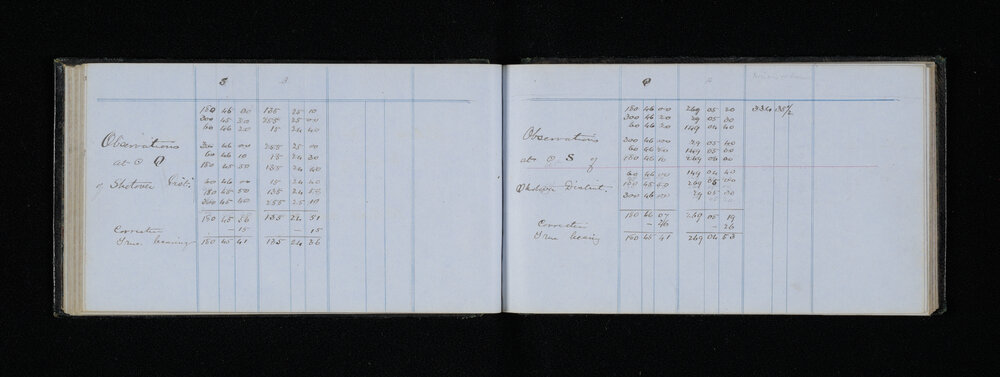 S B
180 46 00 135 25 10
300 45 50 255 25 00
60 46 20 15 24 40
Observations 300 46 00 255 25 00
at O Q 60 46 10 15 24 30
180 45 50 135 24 40
of Shotover Dist. 60 46 00 15 24 40
180 45 50 135 24 50
300 45 40 255 25 10
180 45 56 135 24 51
Correction - 15 - 15
True bearing 180 45 41 135 24 36
Q A
180 46 00 269 05 20 334 35 1/2
300 46 20 29 05 00
60 46 20 149 04 40
Observations 300 46 00 29 05 40
60 46 20 149 05 00
at O S of 180 46 10 269 06 00
60 46 00 149 04 40
Shotover District. 180 45 50 269 05 50
300 46 00 29 05 00
180 46 07 269 05 19
Correction - 26 - 26
True bearing 180 45 41 269 04 53